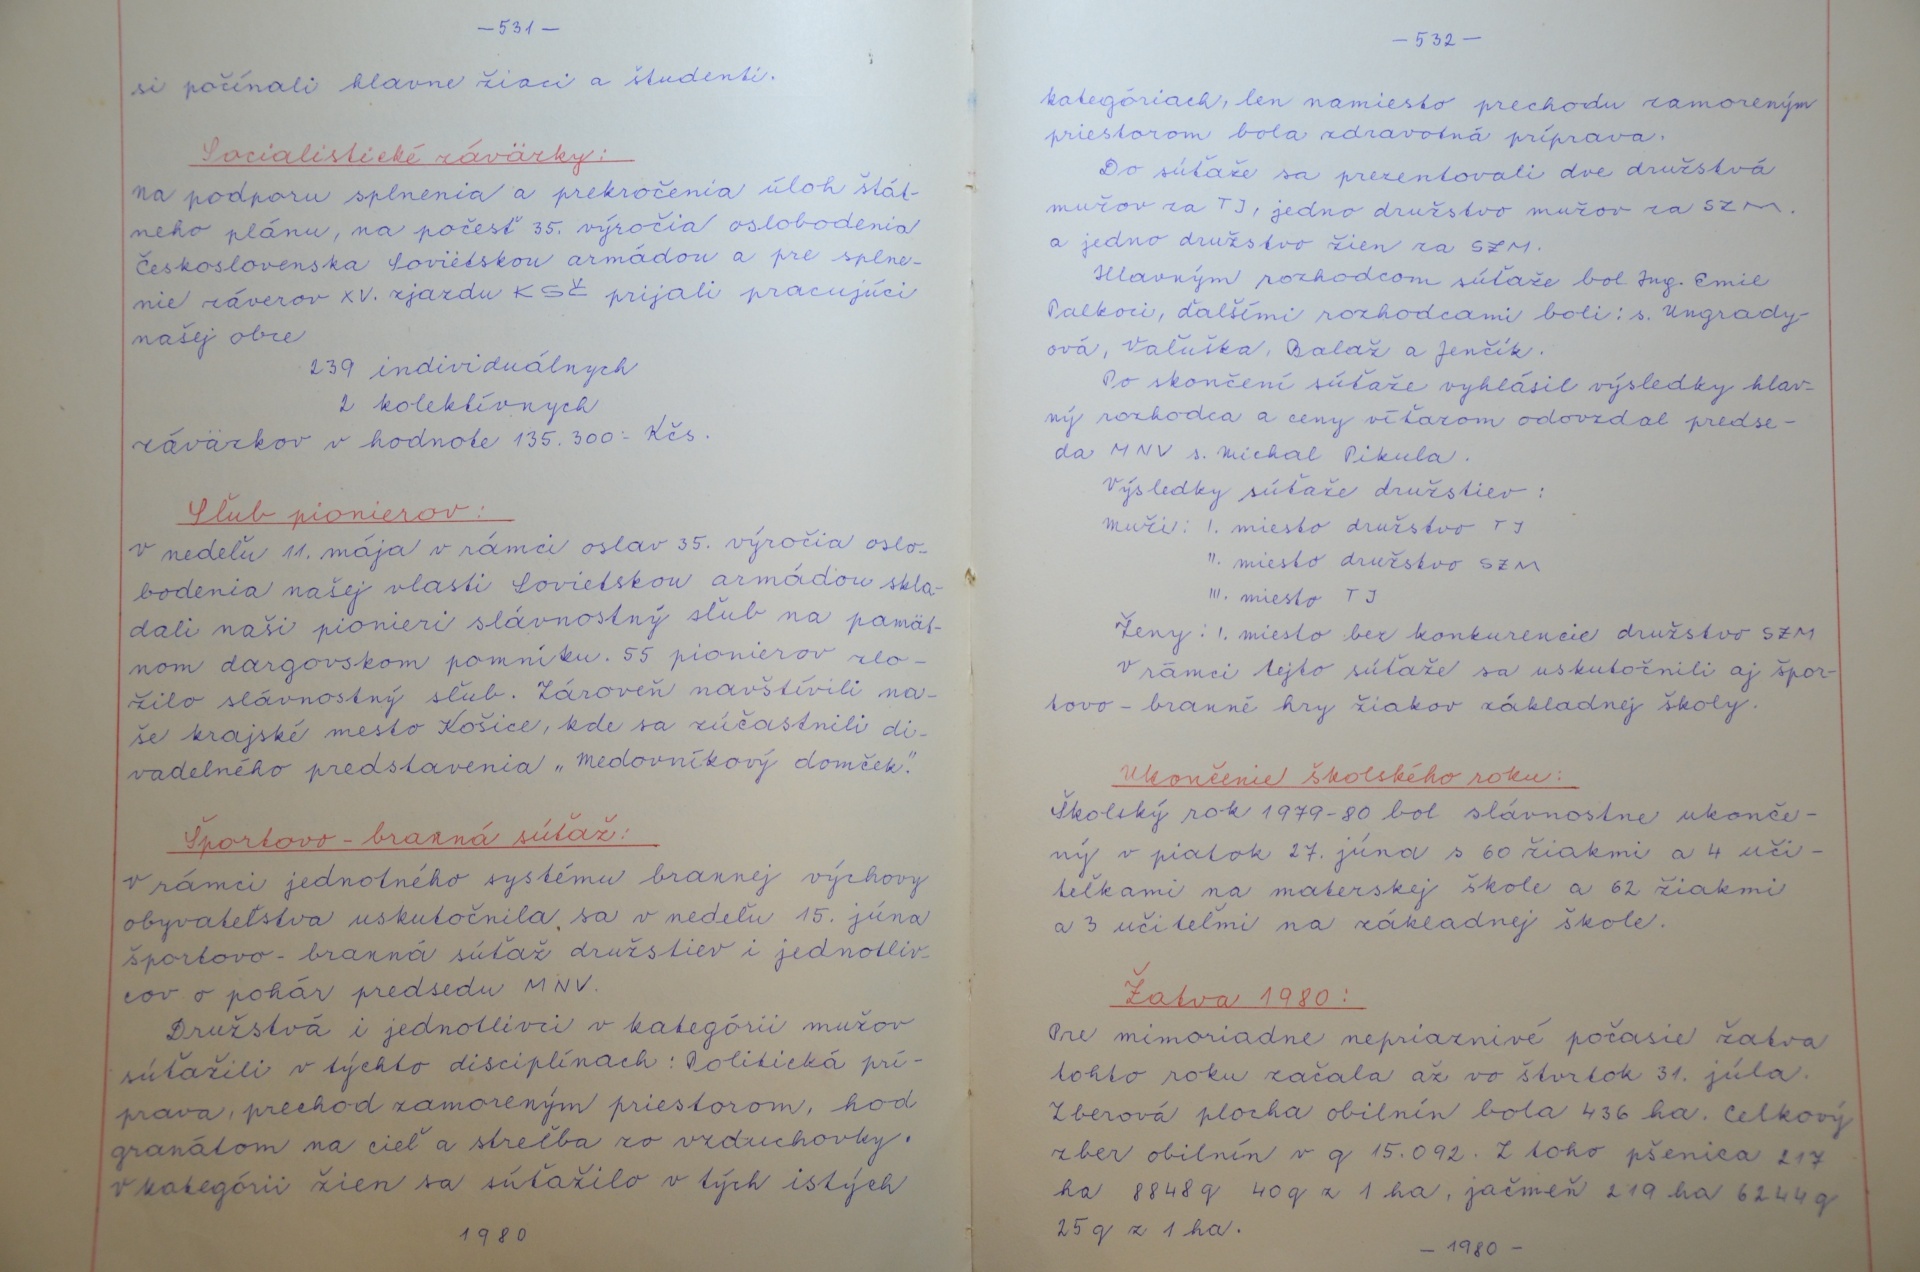 —531—
si počínali hlavne žiaci a študenti.
Socialistické záväzky:
na podporu splnenia a prekročenia úloh štát-
neho plánu, na počesť 35. výročia oslobodenia
Československa Sovietskou armádou a pre splne-
nie záverov XV. zjazdu KSČ prijali pracujúci
našej obce
239 individuálnych
2 kolektívnych
záväzkov v hodnote 135.300.- Kčs.
Sľub pionierov:
V nedeľu 11. mája v rámci osláv 35. výročia oslo-
bodenia našej vlasti Sovietskou armádou skla-
dali naši pionieri slávnostný sľub na pamät-
nom dargovskom pomníku. 55 pionierov zlo-
žilo slávnostný sľub. Zároveň navštívili na-
še krajské mesto Košice, kde sa zúčastnili di-
vadelného predstavenia „Medovníkový domček".
Športovo - branná súťaž:
V rámci jednotného systému brannej výchovy
obyvateľstva uskutočnila sa v nedeľu 15. júna
športovo - branná súťaž družstiev i jednotliv-
cov o pohár predsedu MNV.
Družstvá i jednotlivci v kategórii mužov
súťažili v týchto disciplínach: Politická prí-
prava, prechod zamoreným priestorom, hod
granátom na cieľ a streľba zo vzduchovky.
V kategórii žien sa súťažilo v tých istých
1980
—532—
kategóriach, len namiesto prechodu zamoreným
priestorom bola zdravotná príprava.
Do súťaže sa prezentovali dve družstvá
mužov za TJ, jedno družstvo mužov za SZM.
a jedno družstvo žien za SZM.
Hlavným rozhodcom súťaže bol Ing. Emil
Palkoci, ďalšími rozhodcami boli: s. Ungrady-
ová, Vaľuška, Balaž a Jenčík.
Po skončení súťaže vyhlásil výsledky hlav-
ný rozhodca a ceny víťazom odovzdal predse-
da MNV s. Michal Pikula.
Výsledky súťaže družstiev:
Muži: I. miesto družstvo TJ
II. miesto družstvo SZM
III. miesto TJ
Ženy: I. miesto bez konkurencie družstvo SZM
V rámci tejto súťaže sa uskutočnili aj špor-
tovo - branné hry žiakov základnej školy.
Ukončenie školského roku:
Školský rok 1979-80 bol slávnostne ukonče-
ný v piatok 27. júna s 60 žiakmi a 4 uči-
teľkami na materskej škole a 62 žiakmi
a 3 učiteľmi na základnej škole.
Žatva 1980:
Pre mimoriadne nepriaznivé počasie žatva
tohto roku začala až vo štvrtok 31. júla.
Zberová plocha obilnín bola 436 ha. Celkový
zber obilnín v q 15.092. Z toho pšenica 217
ha 8848q 40q z 1 ha, jačmeň 219 ha 6244q
25q z 1 ha.
— 1980 —